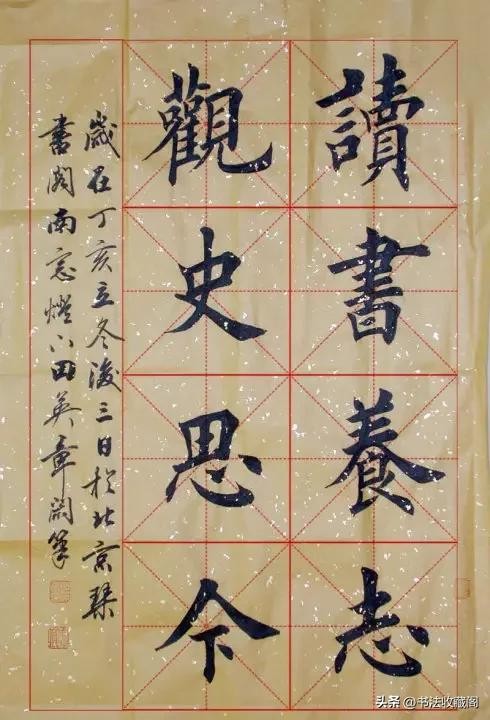 讀書養志
觀史思今
歲在丁亥立冬後三日於北京琴
書閣南窓燈下田英章開筆
头条 @书法收藏阁